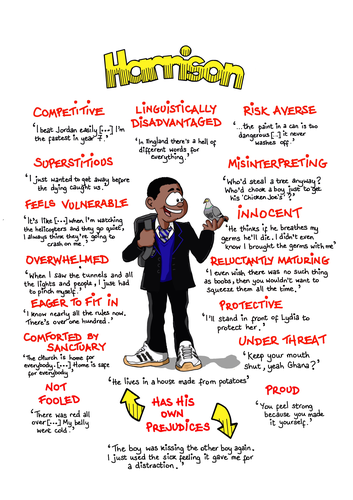 Harrison
COMPETITIVE
'I beat Jordan easily [...] I'm
the fastest in year 7.'
LINGUISTICALLY
DISADVANTAGED
'In England there's a hell of
different words for
everything.'
RISK AVERSE
'...the paint in a can is too
dangerous [..] it never
washes off.'
SUPERSTITIOUS
'I just wanted to get away before
the dying caught us.'
MISINTERPRETING
'Who'd steal a tree anyway?
Who'd chook a boy just to get
his 'Chicken Joe's'?'
FEELS VULNERABLE
'It's like [...] when I'm watching
the helicopters and they go quiet,
I always think they're going to
crash on me.'
INNOCENT
'He thinks if he breathes my
germs he'll die. I didn't even
know I brought the germs with me'
OVERWHELMED
'When I saw the tunnels and all
the lights and people, I just had
to pinch myself.'
RELUCTANTLY MATURING
'I even wish there was no such thing
as boobs, then you wouldn't want to
squeeze them all the time.'
EAGER TO FIT IN
'I know nearly all the rules now.
There's over one hundred.'
PROTECTIVE
'I'll stand in front of Lydia to
protect her.'
COMFORTED BY
SANCTUARY
'The church is home for
everybody. [...] Home is safe
for everybody'
UNDER THREAT
'Keep your mouth
shut, yeah Ghana?'
NOT
FOOLED
'There was red all
over [...] My belly
went cold.'
'He lives in a house made from potatoes'
HAS HIS
OWN
PREJUDICES
'The boy was kissing the other boy again.
I just used the sick feeling it gave me for
a distraction.'
PROUD
'You feel strong
because you made
it yourself.'